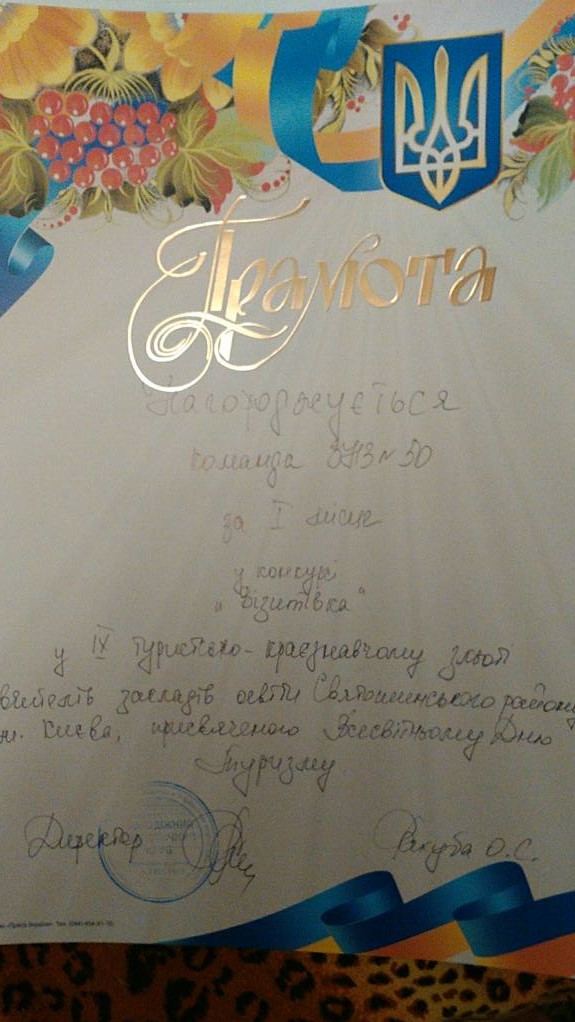 Грамота
Нагороджується
команда ЗНЗ № 50
за I місце
у конкурсі
"Візитівка"
у IX туристсько-краєзнавчому зльоті
вчителів закладів освіти Святошинського району
м. Києва, присвяченого Всесвітньому Дню
Туризму
Директор
Якуба О.С.